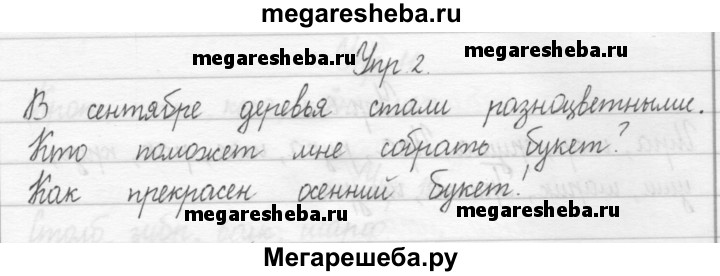 megaresheba.ru
megaresheba.ru Упр 2. megaresheba.ru
В сентябре деревья стали разноцветными.
Кто поможет мне собрать букет?
Как прекрасен осенний букет!
megaresheba.ru megaresheba.ru
Мегарешеба.ру